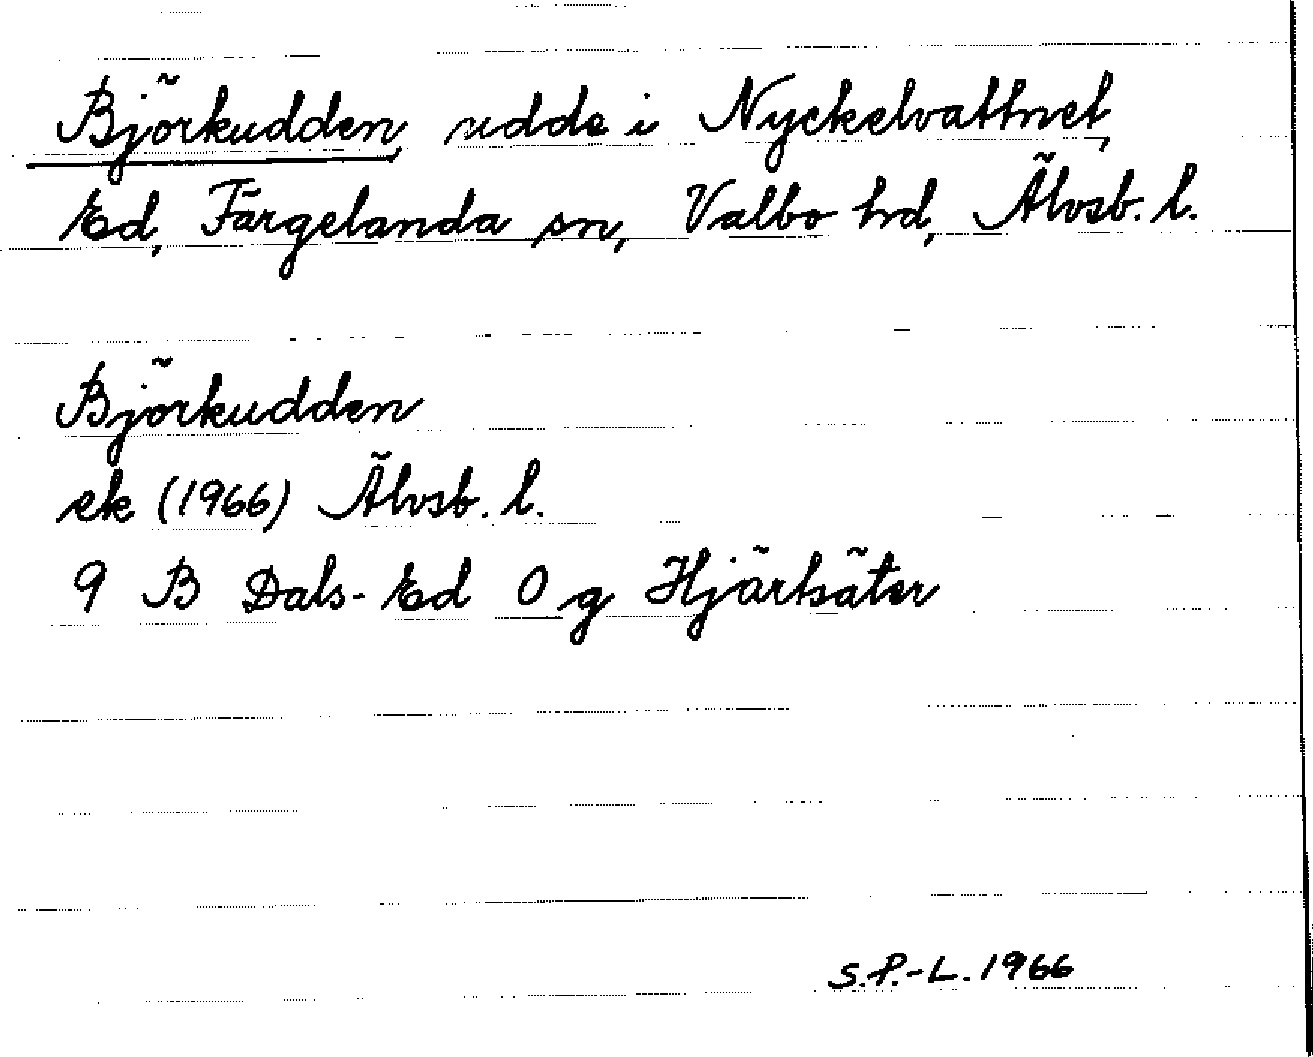 Björkudden, udde i Nyckelvattnet,
Ed, Färgelanda sn, Valbo hd, Älvsb. l.
Björkudden
ek (1966) Älvsb. l.
9 B Dals-Ed O g Hjärtsäter
S.P.-L. 1966